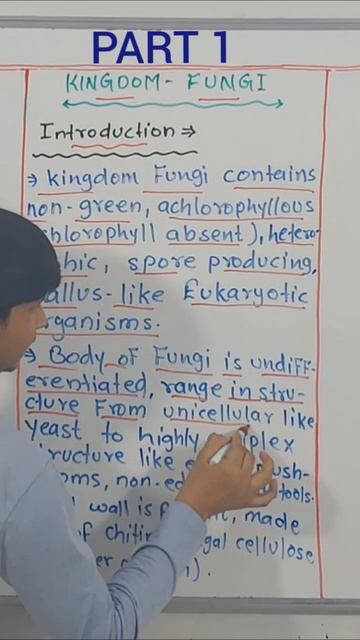 PART 1
KINGDOM - FUNGI
Introduction ⇒
⇒ Kingdom Fungi contains
non-green, achlorophyllous
chlorophyll absent), hetero-
phic, spore producing,
allus-like Eukaryotic
rganisms.
⇒ Body of Fungi is undiff-
erentiated, range in stru-
cture From unicellular like
yeast to highly plex
tructure like ush-
oms, non-ed tools.
wall is made
f Chiti gal cellulose
er